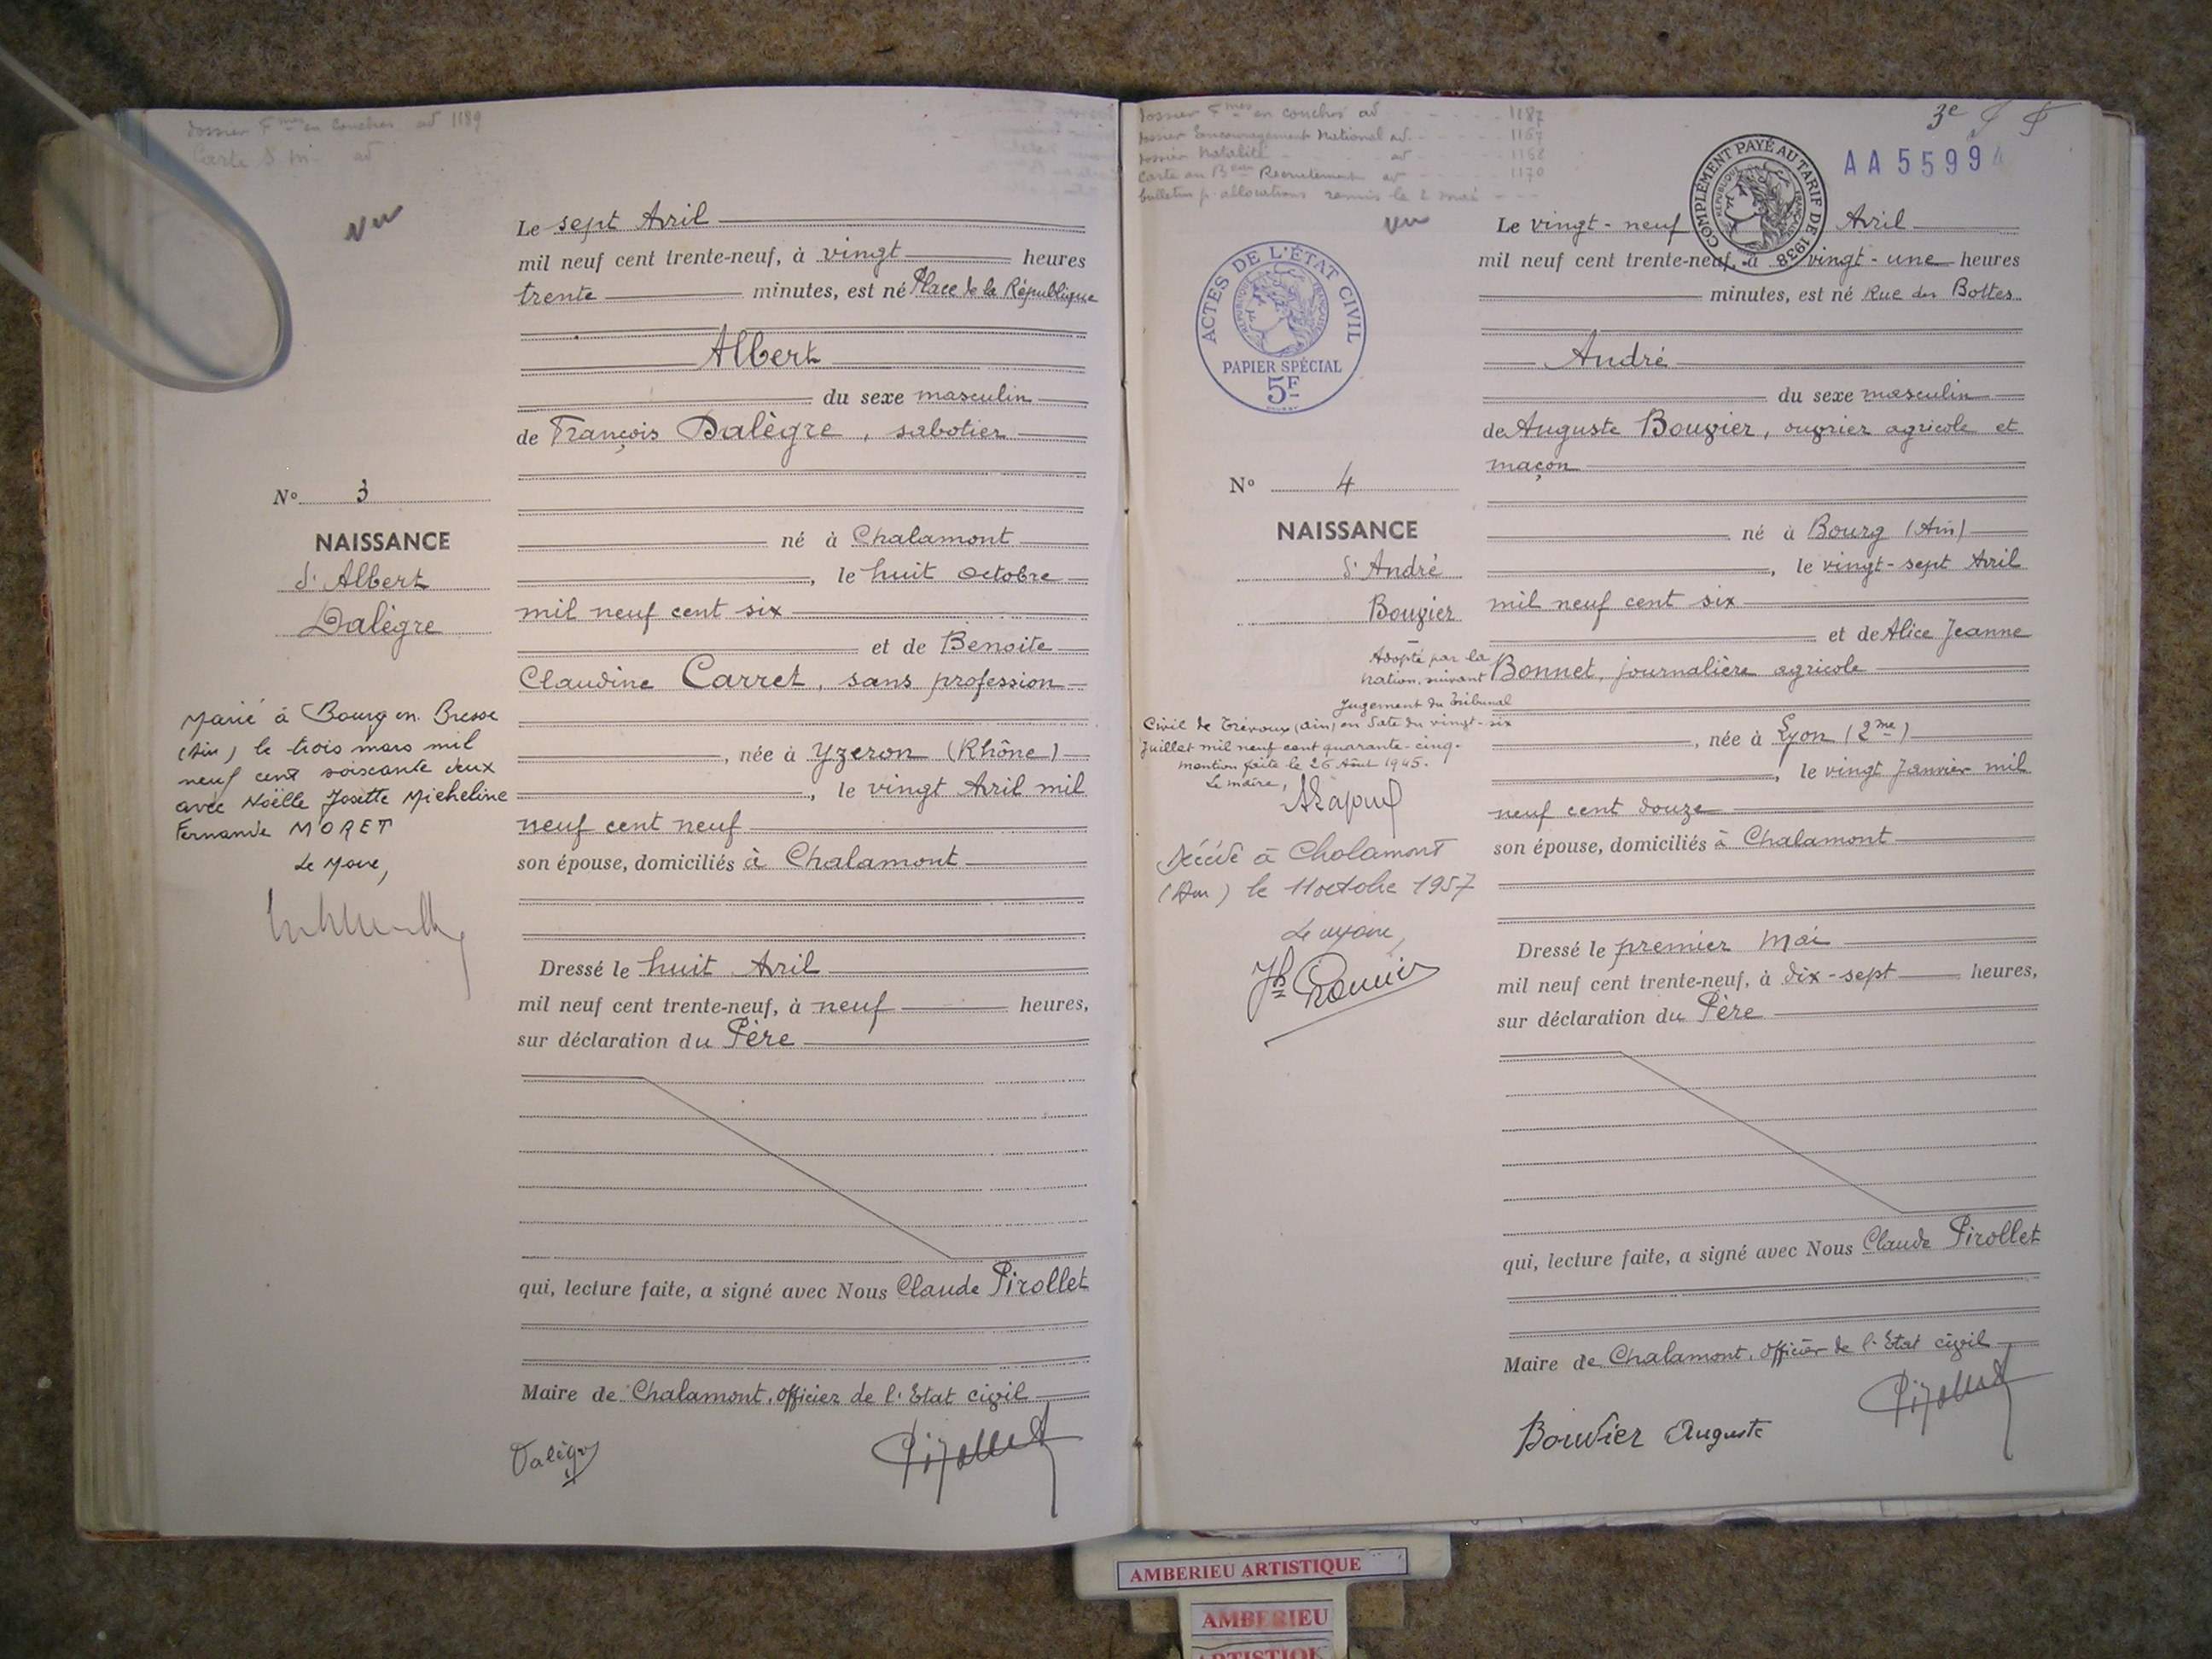 dossier Fmes en couches ad 1189
Carte S.M. ad
vu
Le sept Avril
mil neuf cent trente-neuf, à vingt heures
trente minutes, est né Place de la République
Albert
du sexe masculin
de François Dalègre, sabotier
né à Chalamont
, le huit octobre
mil neuf cent six
et de Benoite
Claudine Carret, sans profession
, née à Yzeron (Rhône)
, le vingt Avril mil
neuf cent neuf
son épouse, domiciliés à Chalamont
Dressé le huit Avril
mil neuf cent trente-neuf, à neuf heures,
sur déclaration du Père
qui, lecture faite, a signé avec Nous Claude Pirollet
Maire de Chalamont, officier de l'Etat civil
Dalègre
Pirollet
No 3
NAISSANCE
d'Albert
Dalègre
Marié à Bourg en Bresse
(Ain) le trois mars mil
neuf cent soixante deux
avec Noëlle Josette Micheline
Fernande MORET
Le Maire,
dossier Fmes en couches ad 1187
dossier Encouragement National ad 1167
dossier Natalité ad 1168
Carte au Beau Recrutement ad 1170
bulletin p. allocations remis le 2 mai
vu
3e
AA5599
COMPLÉMENT PAYÉ AU TARIF DE 1938
RÉPUBLIQUE FRANÇAISE
ACTES DE L'ÉTAT CIVIL
RÉPUBLIQUE FRANÇAISE
PAPIER SPÉCIAL
5F
Le vingt-neuf Avril
mil neuf cent trente-neuf, à vingt-une heures
minutes, est né Rue des Bottes
André
du sexe masculin
de Auguste Bouvier, ouvrier agricole et
maçon
né à Bourg (Ain)
, le vingt-sept Avril
mil neuf cent six
et de Alice Jeanne
Bonnet, journalière agricole
, née à Lyon (2me)
, le vingt Janvier mil
neuf cent douze
son épouse, domiciliés à Chalamont
Dressé le premier Mai
mil neuf cent trente-neuf, à dix-sept heures,
sur déclaration du Père
qui, lecture faite, a signé avec Nous Claude Pirollet
Maire de Chalamont, officier de l'Etat civil
Bouvier Auguste
Pirollet
No 4
NAISSANCE
d'André
Bouvier
Adopté par la
Nation, suivant
Jugement du Tribunal
Civil de Trévoux (Ain) en date du vingt-six
Juillet mil neuf cent quarante-cinq.
Mention faite le 26 Août 1945.
Le maire,
Décédé à Chalamont
(Ain) le 11 octobre 1957
Le Maire,
AMBERIEU ARTISTIQUE
AMBERIEU
ARTISTIQUE